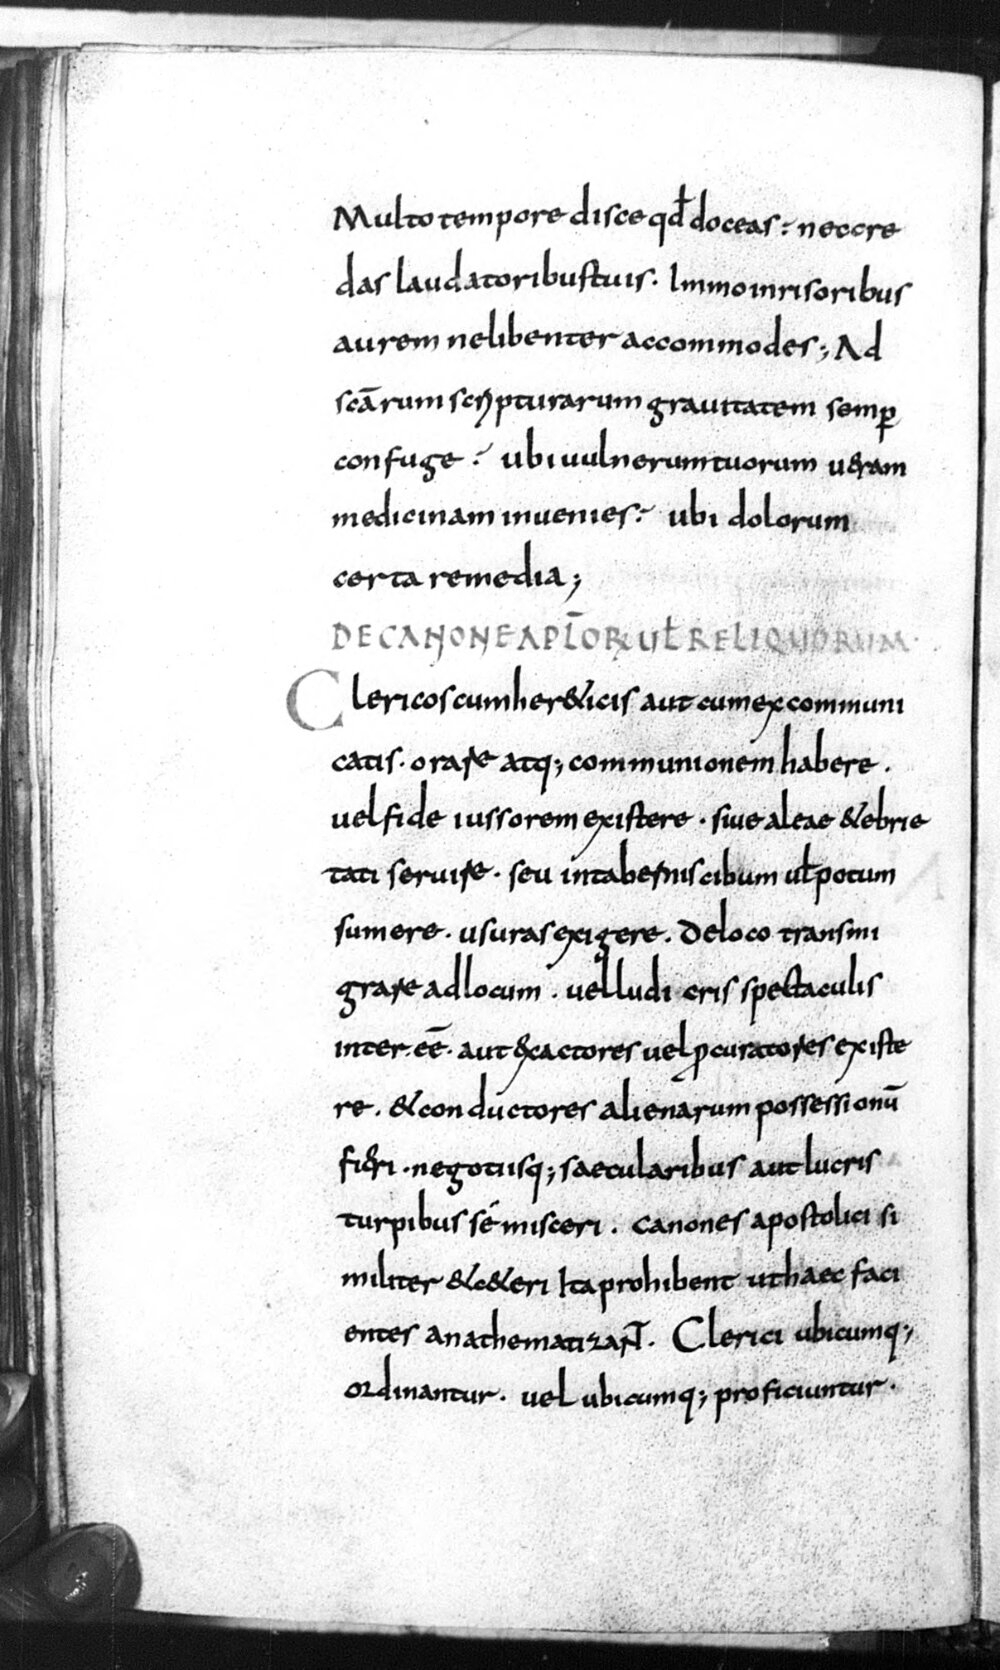 Multo tempore disce qđ doceas; neccre
das laudatoribus tuis. Immo inrisoribus
aurem ne libenter accommodes; Ad
scārum scripturarum gravitatem semꝑ
confuge; ubi vulnerum tuorum veram
medicinam invenies; ubi dolorum
certa remedia;
DE CANONE APL̄ORꝜ UƚRELIQUORUM.
Clericos cum her&icis aut cum excommuni
catis. orare atq; communionem habere.
vel fide iussorem existere. sive aleae &ebrie
tati servire. seu in tabernis cibum uƚ potum
sumere. usuras exigere. De loco transmi
grare ad locum. vel ludi cris spectaculis
inter eē. aut exactores vel ꝓcuratores existe
re. & conductores alienarum possessionū
fieri. negotiisq; saecularibus aut lucris
turpibus sé misceri. canones apostolici si
militer &c&eri Ita prohibent ut haec faci
entes anathematizarent̄. Clerici ubicumq;
ordinantur. vel ubicumq; proficiuntur.